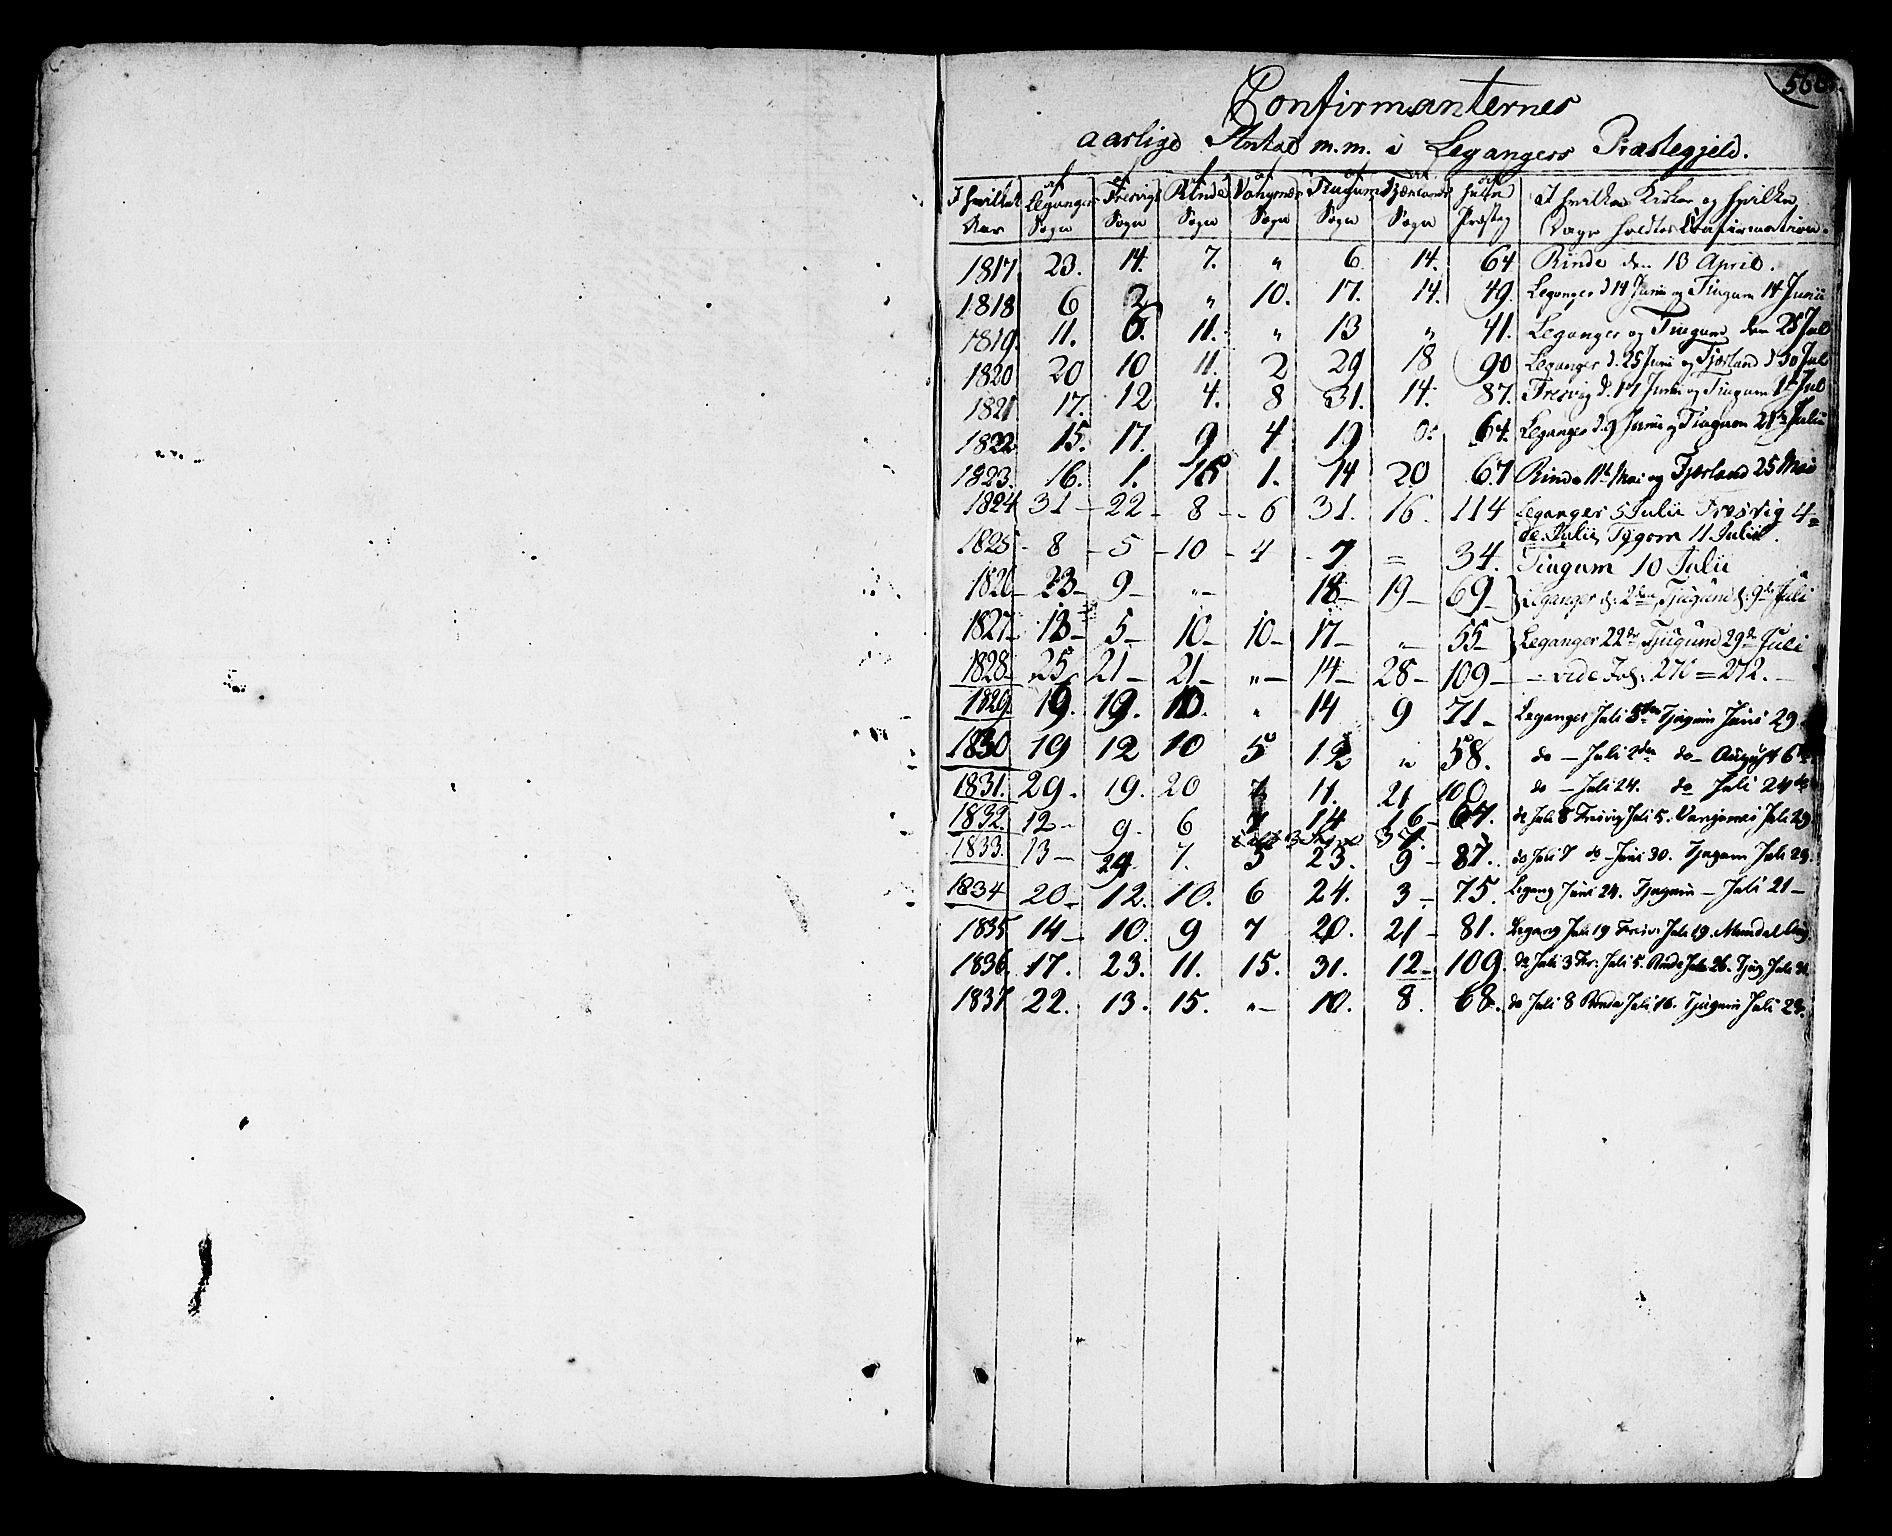 Confirmanternes
aarlige Antal m.m. i Legangers Præstegjeld.
I hvilket Aar | af Leganger Sogn | af Fresvigs Sogn | af Rinde Sogn | af Vangsnæs Sogn | af Tiugum Sogn | af Fjærlands Sogn | af hele Præsteg | I hvilken Kirke og hvilken Dage holdtes Confirmation.
1817 23. 14. 7. " 6 14. 64 Rinde den 13 April.
1818 6 2 " 10. 17. 14. 49. Leganger d 14 Junii og Tiugum 14 Junii
1819. 11. 6. 11. " 13 " 41. Leganger og Tiugum den 25 Jul
1820 20 10 11. 2 29 18 90 Leganger d. 25 Juni og Fjerland d 30 Jul
1821 17. 12 4. 8 31. 14. 87. Fresvig d. 17 Juni og Tiugum Jul
1822 15. 17. 9 4. 19 0. 64. Leganger d. 9 Junii og Tiugum 21 Julii
1823. 16. 1. 15 1. 14 20 67 Rinde 11t Mai og Fjerland 25 Mai
1824 31 – 22 – 8 – 6 31. 16. 114 Leganger 5 Julii Fresvig 4=
de Julii, Tygom 11 Julii.
1825 – 8 – 5 – 10 – 4 – 7 = 34. Tiugum 10 Julii
1826 – 23 – 9 – " – 18 – 19 – 69 – Leganger d: 2den, Tjugum d: 9de Juli
1827 – 13 – 5 – 10 – 10 – 17 – " – 55 – Leganger 22de, Tjugum 29de Juli
1828 – 25 21 – 21 – " – 14 – 28 – 109 – – vide Fol: 270 = 272. –
1829. 19. 19. 10. " 14 9 71 – Leganger Juli 5ten Tjugum Juni 29
1830 19 12 10 5 12 " 58. do – Juli 2den do – August 6
1831. 29. 19. 20 11. 21 100 do – Juli 24. do Juli 24de
1832. 12 – 9 – 6 14 16 – 67. do Juli 8 Fresvig Juli 5. Vangsnes Juli 29
37.
1833. 13 – 24 7. 5 23. 9 – 87. do Juli 7 do – Juni 30. Tjugum Juli 29.
1834 20 – 12. 10. 6 24. 3 – 75. Legang Juni 24. Tjugum – Juli 21 –
1835 14 – 10. 9 7 20. 21 – 81. Legang Juli 19 Fresv. Juli 19. Mundal Aug
1836 17. 23. 11. 15. 31. 12 – 109. do Juli 3 Fr: Juli 5. Rinde Juli 26. Tjug Juli 31
1837 22. 13. 15. " – 10. 8. 68. do Juli 8 Rinde Juli 16. Tjugum Juli 23.